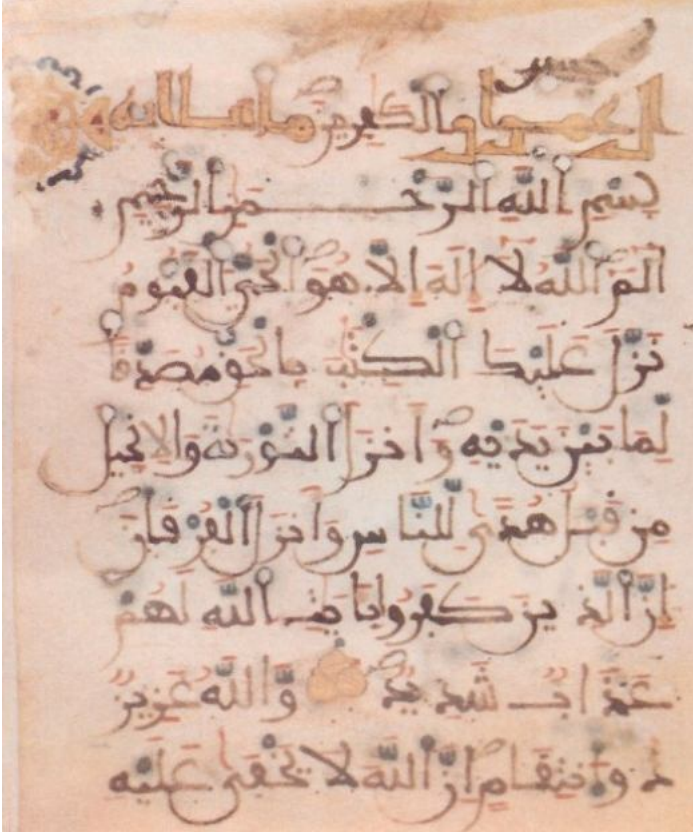 ال عمران الكٰفرين مايتا ايه
بِسْمِ اللَّهِ الرَّحْمَٰنِ الرَّحِيمِ
الم اللَّهُ لَا إِلَٰهَ إِلَّا هُوَ الْحَيُّ الْقَيُّومُ
نَزَّلَ عَلَيْكَ الْكِتَٰبَ بِالْحَقِّ مُصَدِّقًا
لِّمَا بَيْنَ يَدَيْهِ وَأَنزَلَ التَّوْرَىٰةَ وَالْإِنجِيلَ
مِن قَبْلُ هُدًى لِّلنَّاسِ وَأَنزَلَ الْفُرْقَانَ
إِنَّ الَّذِينَ كَفَرُوا بِـَٔايَٰتِ اللَّهِ لَهُمْ
عَذَابٌ شَدِيدٌ وَاللَّهُ عَزِيزٌ
ذُو انتِقَامٍ إِنَّ اللَّهَ لَا يَخْفَىٰ عَلَيْهِ